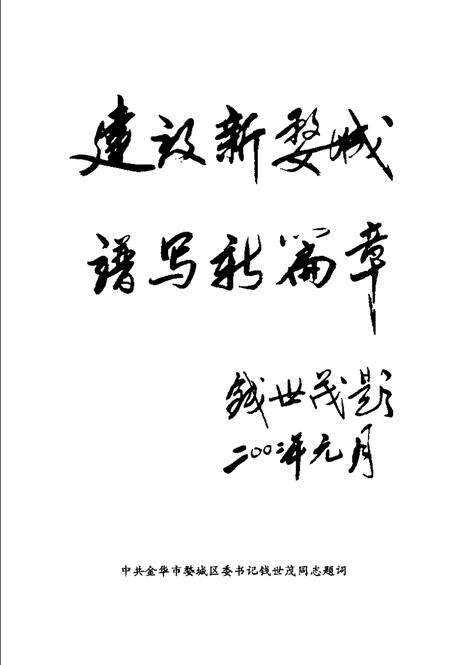 建设新婺城
谱写新篇章
钱世茂题
二〇〇二年元月
中共金华市婺城区委书记钱世茂同志题词